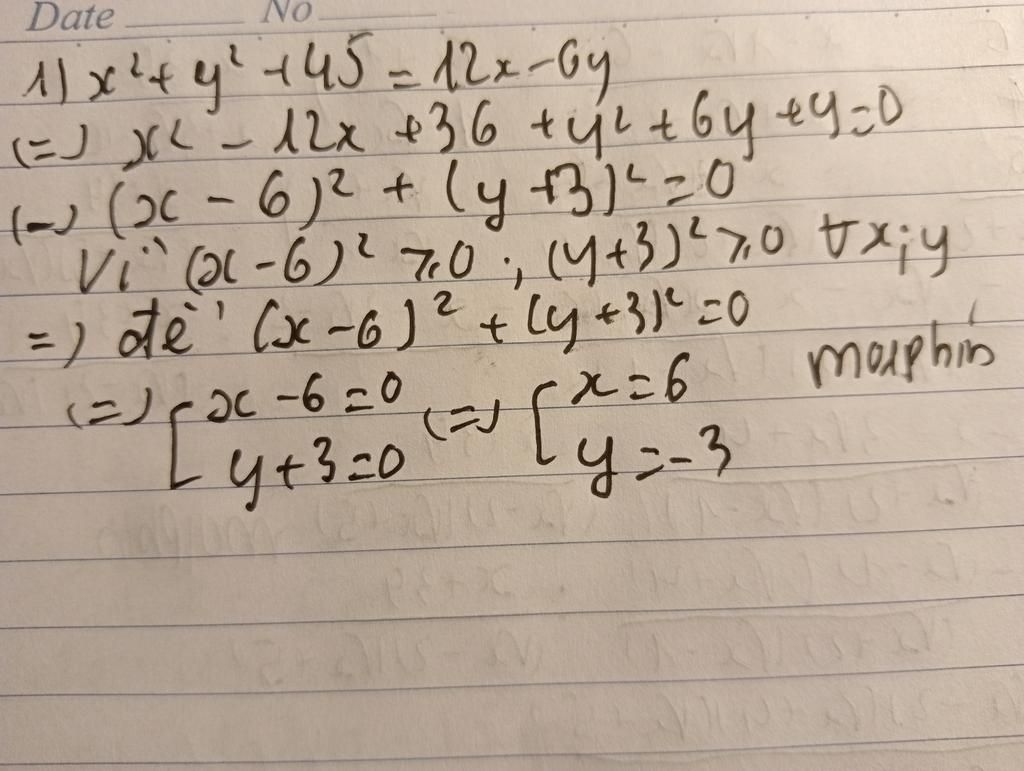 Date No
1) x² + y² + 45 = 12x - 6y
(=) x² - 12x + 36 + y² + 6y + y = 0
(=) (x - 6)² + (y + 3)² = 0
Vì (x - 6)² ≥ 0 ; (y + 3)² ≥ 0 ∀x;y
=) để (x - 6)² + (y + 3)² = 0
(=) [ x - 6 = 0 (=) [ x = 6
y + 3 = 0 y = -3
morphin